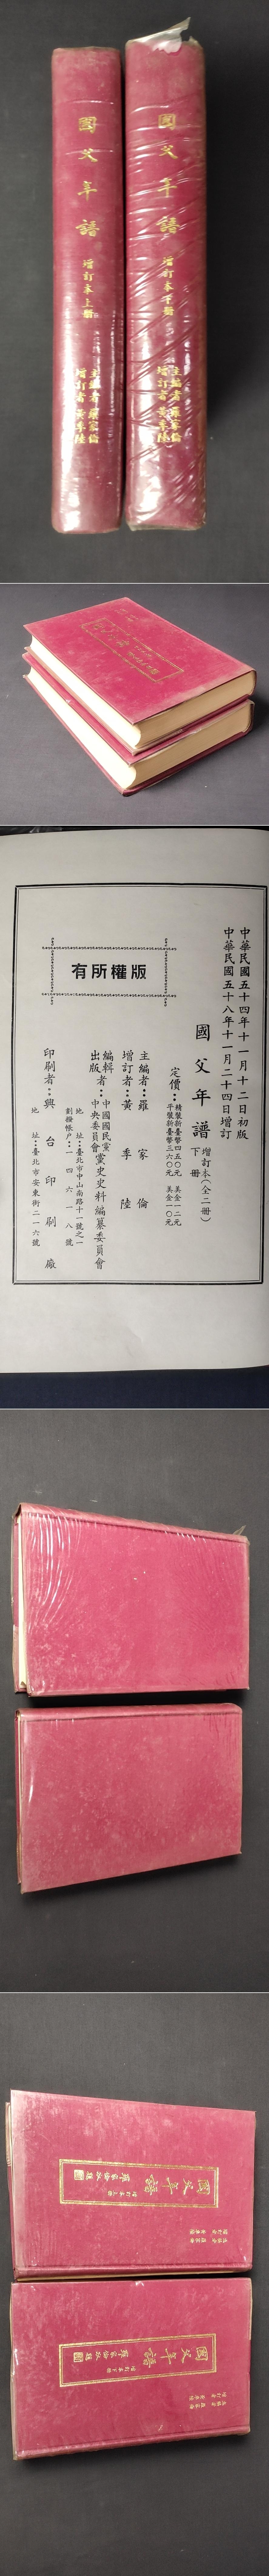 國父年譜
增訂本上冊
主編者 羅家倫
增訂者 黃季陸
國父年譜
增訂本下冊
主編者 羅家倫
增訂者 黃季陸
中華民國五十四年十一月十二日初版
中華民國五十八年十一月二十四日增訂
國父年譜 增訂本(全二冊) 下冊
定價：精裝新臺幣四五〇元 美金一二元
平裝新臺幣三六〇元 美金一〇元
主編者：羅家倫
增訂者：黃季陸
編輯者：中國國民黨
出版 中央委員會黨史史料編纂委員會
地址：臺北市中山南路十一號之一
劃撥帳戶：一四六一八號
印刷者：興台印刷廠
地址：臺北市安東街二一六號
有所權版
國父年譜
增訂本上冊
主編者 羅家倫
增訂者 黃季陸
國父年譜
增訂本下冊
主編者 羅家倫
增訂者 黃季陸